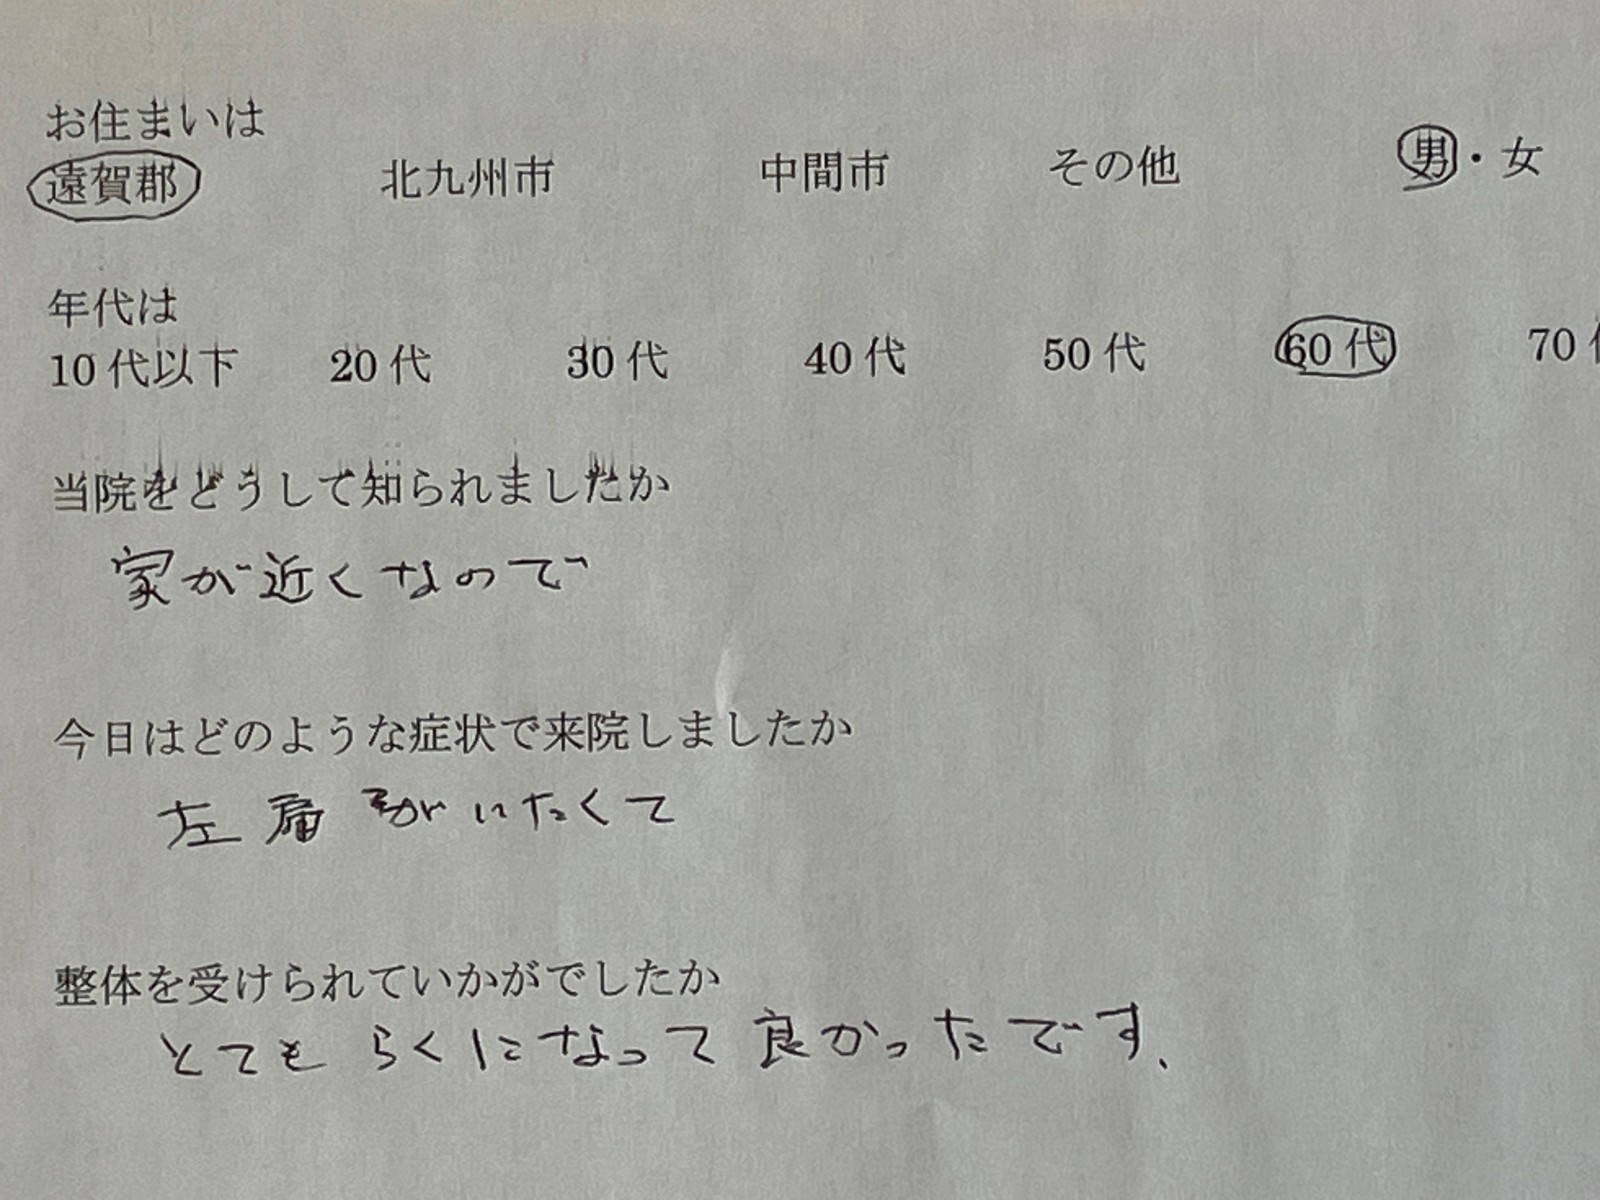 お住まいは
遠賀郡 北九州市 中間市 その他 男・女
年代は
10代以下 20代 30代 40代 50代 60代 70
当院をどうして知られましたか
家が近くなので
今日はどのような症状で来院しましたか
左肩がいたくて
整体を受けられていかがでしたか
とてもらくになって良かったです、